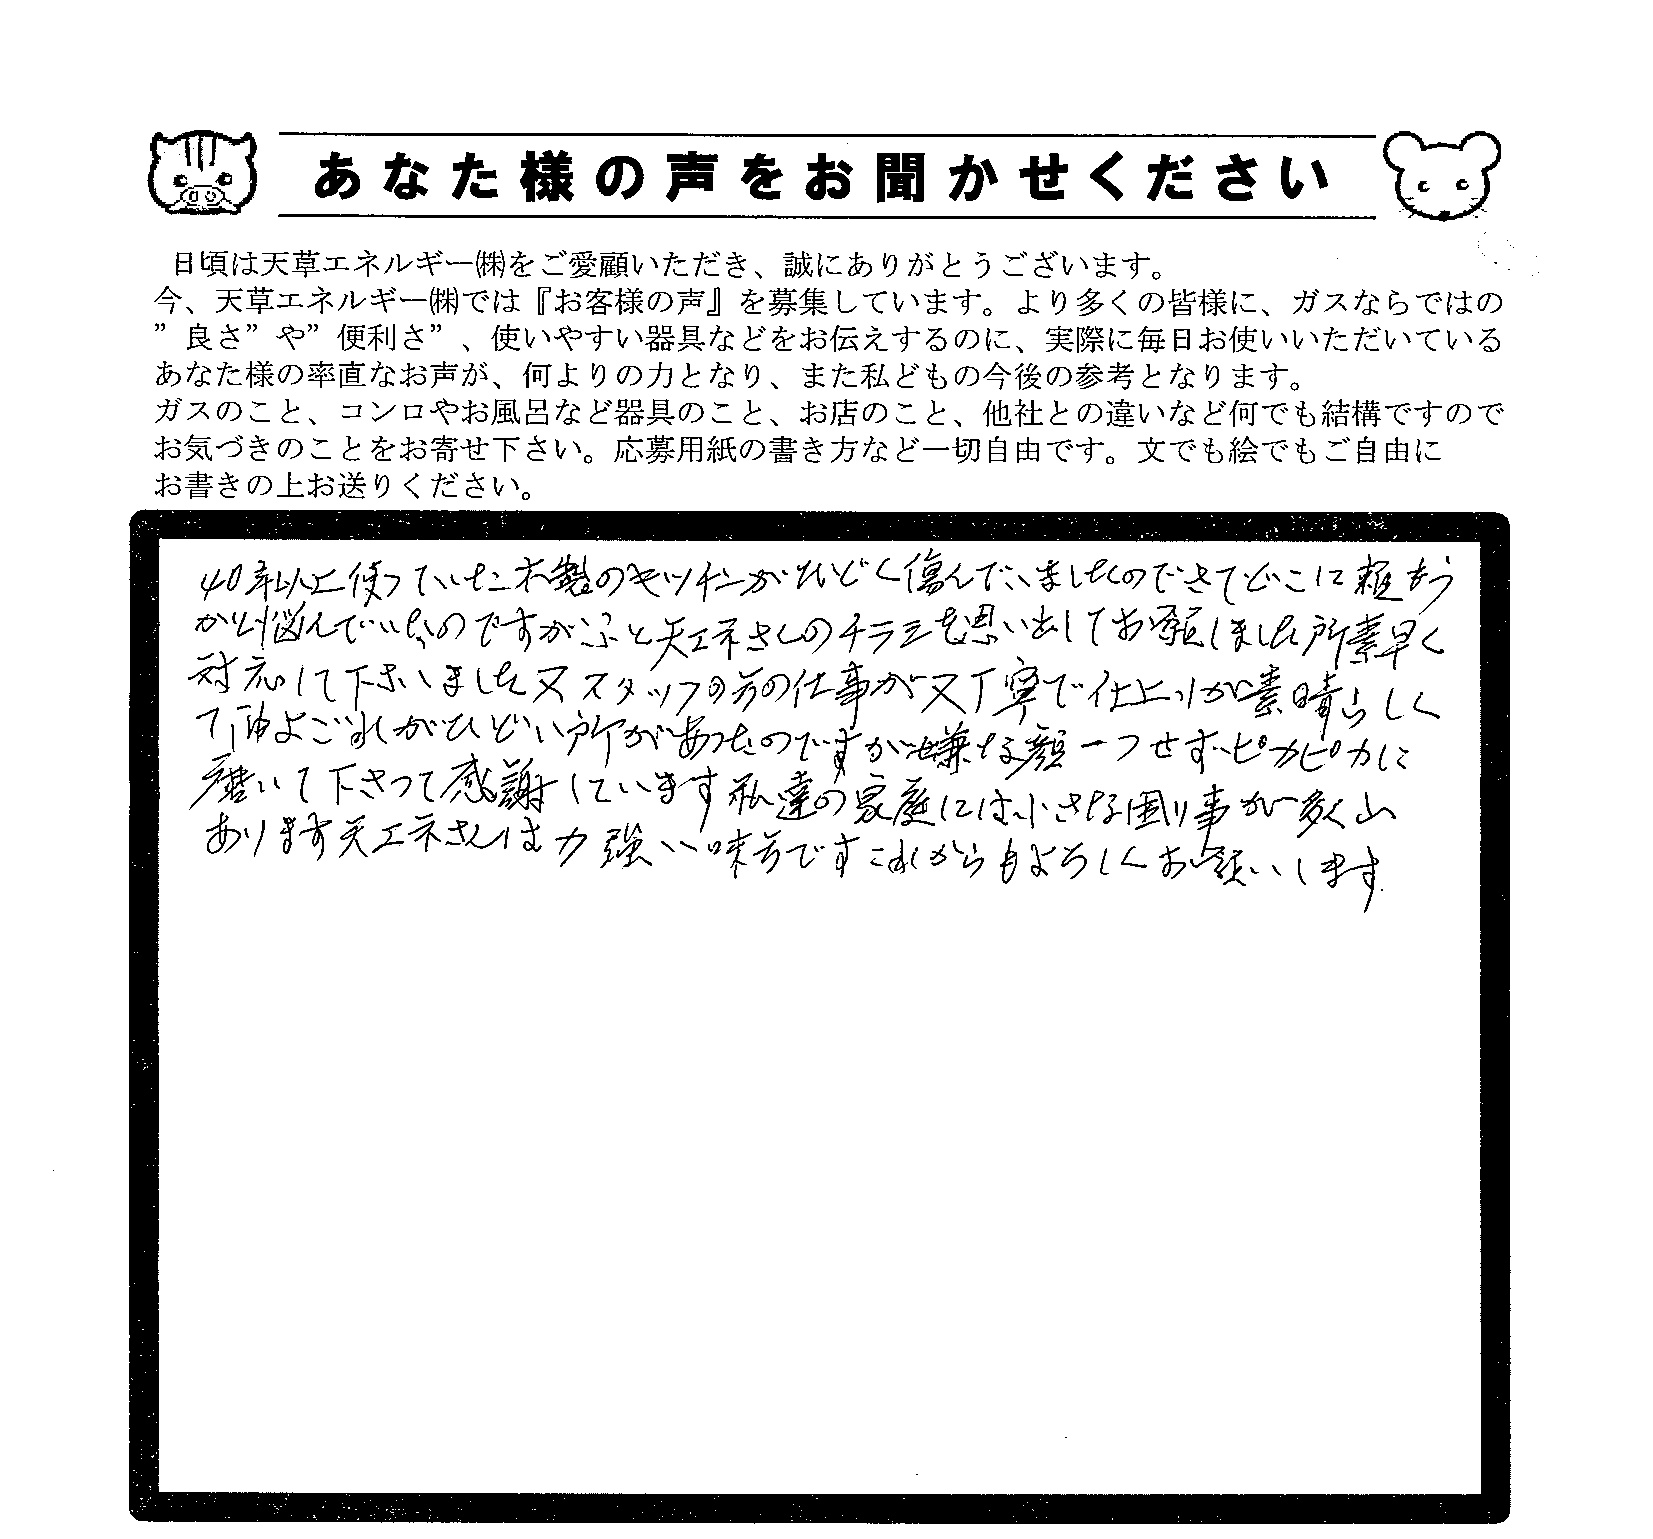 あなた様の声をお聞かせください
日頃は天草エネルギー㈱をご愛顧いただき、誠にありがとうございます。
今、天草エネルギー㈱では『お客様の声』を募集しています。より多くの皆様に、ガスならではの
”良さ”や”便利さ”、使いやすい器具などをお伝えするのに、実際に毎日お使いいただいている
あなた様の率直なお声が、何よりの力となり、また私どもの今後の参考となります。
ガスのこと、コンロやお風呂など器具のこと、お店のこと、他社との違いなど何でも結構ですので
お気づきのことをお寄せ下さい。応募用紙の書き方など一切自由です。文でも絵でもご自由に
お書きの上お送りください。
40年以上使っていた木製のキッチンがひどく傷んでいましたのでさてどこに頼もう
かと悩んでいたのですがふと天エネさんのチラシを思い出してお願しました所素早く
対応して下さいました又スタッフの方の仕事が又丁寧で仕上りが素晴らしく
て油よごれがひどい所があったのですが嫌な顔一つせずピカピカに
磨いて下さって感謝しています私達の家庭には小さな困り事が多く山
あります天エネさんは力強い味方ですこれからもよろしくお願いします